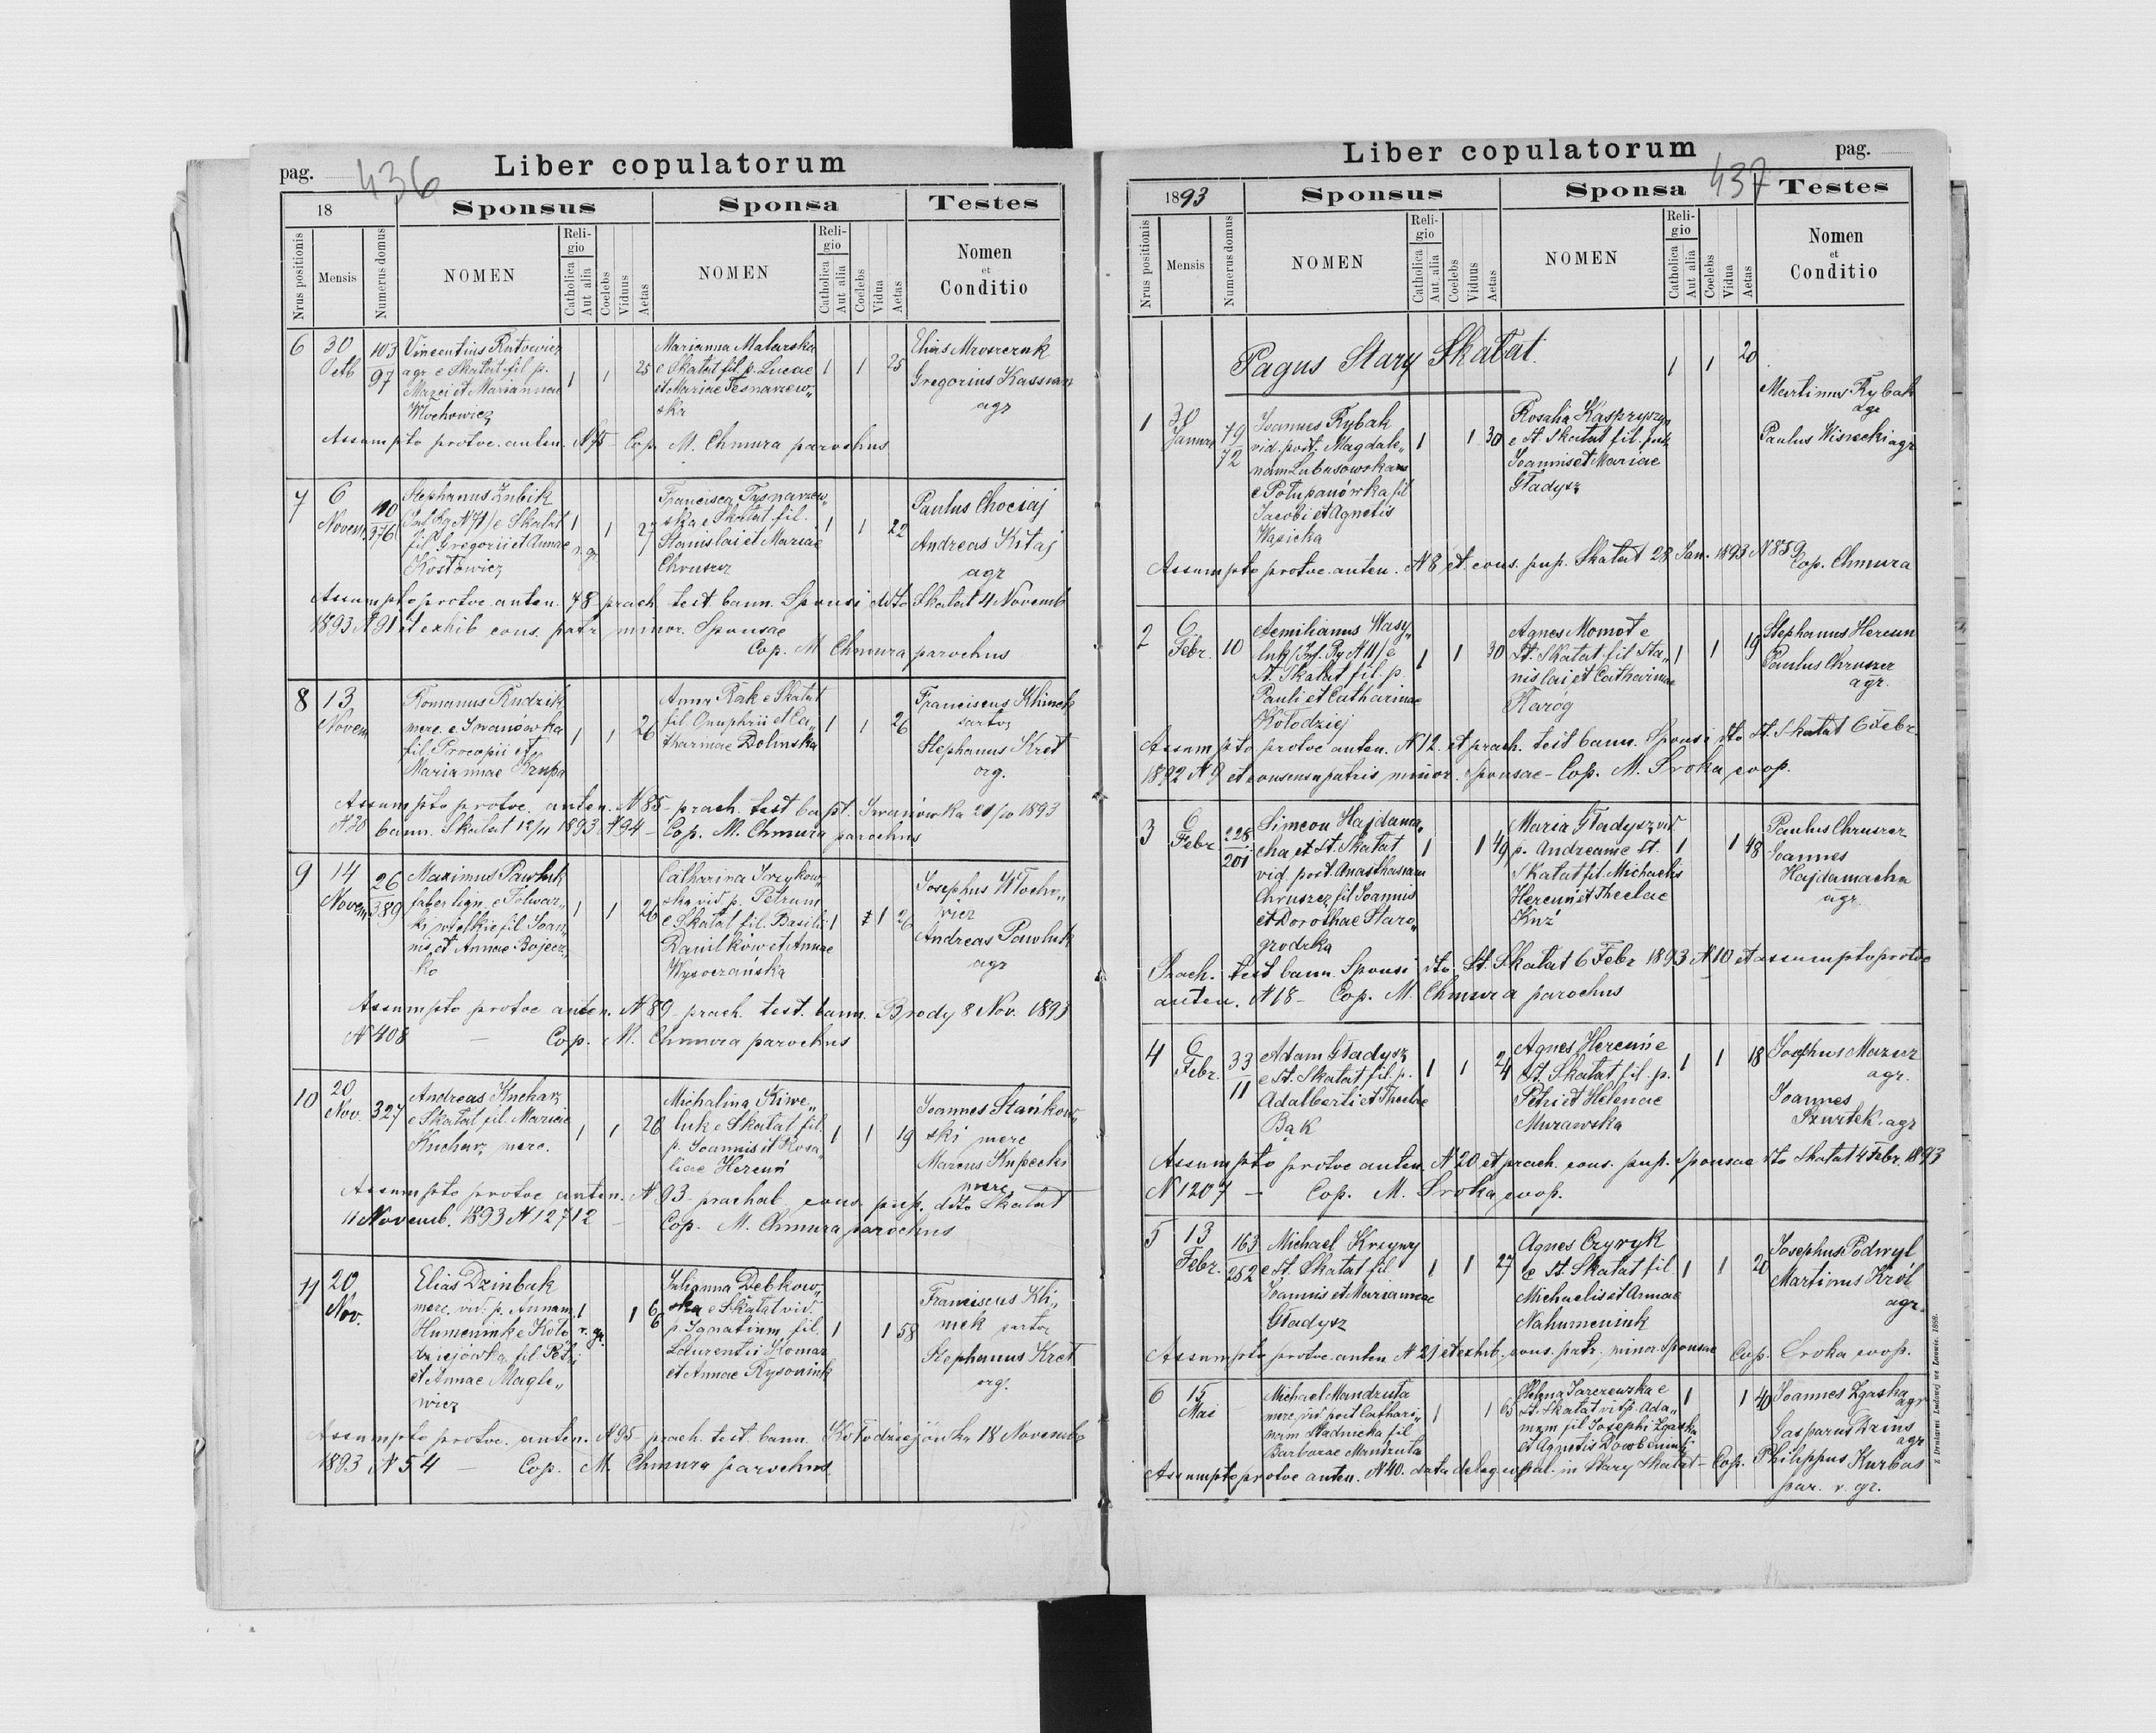 pag. 436
Liber copulatorum
18
Sponsus
Sponsa
Testes
Nrus positionis
Mensis
Numerus domus
NOMEN
Religio
Catholica
Aut alia
Coelebs
Viduus
Aetas
NOMEN
Religio
Catholica
Aut alia
Coelebs
Vidua
Aetas
Nomen
et
Conditio
6
30
Octb
103
97
Vincentius Rutowicz
agr e Skałat fil p.
Mariannae
Włochowicz
1 1 25
Marianna Malarska
e Skałat fil. p. Lucae
et Mariae
1 1 25
Elias Mroszczuk
Gregorius Kassian
agr
Assumpto protoc. anten. N 75 Cop. M. Chmura parochus
7
6
Novem
110
376
Stephanus Zubik
N 71/ e Skałat
fil Gregorii et Annae
Kostowicz
1
r. gr.
1 27
Francisca Tysnarzew„
ska e Skałat fil.
Stanislai et Mariae
Chruszcz
1 1 22
Paulus Chociaj
Andreas Kitaj
agr
Assumpto protoc. anten. 78 prach. test. bann. Sponsi dto Skałat 4 Novemb
1893 N 91 et exhib cons. patr minor. Sponsae
Cop. M Chmura parochus
8
13
Novem
Romanus Rudzik
merc. e Iwanówka
fil. Procopii et
Mariannae
1 1 26
Anna Rak e Skałat
fil Onuphrii et Ca„
tharinae Dolinska
1 1 26
Franciscus Klimek
sartor
Stephanus Kret
org.
Assumpto protoc. anten. N 85 – prach. test bapt. Iwanówka 21/10 1893
N 30 bann. Skałat 12/11 1893 N 94 – Cop. M. Chmura parochus
9
14
Novem
26
389
Maximus Pawluk
faber lign. e Folwar„
ki wielkie fil Joan„
nis et Annae Bojecz„
ko
1 1 26
Catharina
ska vid p. Petrum
e Skałat fil. Basilii
Danilków et Annae
Wysoczańska
1 1 26
Josephus Włocho„
wicz
Andreas Pawluk
agr
Assumpto protoc anten. N 89 – prach. test. bann. Brody 8 Nov. 1893
N 408 – Cop. M. Chmura parochus
10
20
Nov.
327
Andreas Kuchar
e Skałat fil. Mariae
Kuchar, merc.
1 1 26
Michalina Kiwe„
luk e Skałat fil.
p. Joannis et Rosa„
liae Hercuń
1 1 19
Joannes Stańkow„
ski merc
Marcus
merc
Assumpto protoc anten. N 93 – prachab. cons. pup. ddto Skałat
11 Novemb. 1893 N 12712 – Cop. M. Chmura parochus
11
20
Nov.
Elias Dzinbak
merc. vid. p. Annam
Humeniuk e Koło„
dziejówka fil Petri
et Annae Magle„
wicz
1
r. gr.
1 66
Julianna Debkow„
ska e Skałat vid
p. Ignatium fil.
Laurentii Komar
et Annae
1 1 58
Franciscus Kli„
mek sartor
Stephanus Kret
org.
Assumpto protoc. anten. N 95 – prach. test. bann. Kołodziejówka 18 Novemb
1893 N 54 – Cop. M. Chmura parochus
Liber copulatorum
pag.
437
1893
Sponsus
Sponsa
Testes
Nrus positionis
Mensis
Numerus domus
NOMEN
Religio
Catholica
Aut alia
Coelebs
Viduus
Aetas
NOMEN
Religio
Catholica
Aut alia
Coelebs
Vidua
Aetas
Nomen
et
Conditio
Pagus Stary Skałat
1
30
Januar
79
72
Joannes Rybak
vid. post. Magdale„
nam Lubasowskam
e Połupanówka fil
Jacobi et Agnetis
Wąsicka
1 1 30
Rosalia Kasprzyszyn
e St Skałat fil.
Joannis et Mariae
Gładysz
1 1 20
Martinus Rybak
agr
Paulus Wisnecki agr
Assumpto protoc. anten. N 8 et cons. pup. Skałat 28 Jan. 1893 N 859
Cop. Chmura
2
6
Febr.
10
Aemilianus Wasy„
luk /Inf. Rg N 11/ e
St. Skałat fil. p.
Pauli et Catharinae
Kołodziej
1 1 30
Agnes Momot e
St. Skałat fil Sta„
nislai et Catharinae
Karóg
1 1 19
Stephanus Hercun
Paulus Chruszcz
agr.
Assumpto protoc anten. N 12. et prach. test bann. Sponsi dto St. Skałat 6 Febr.
1892 N 9 et consensu patris minor. sponsae – Cop. M. Sroka coop.
3
6
Febr
228
201
Simeon Hajdama„
cha et St. Skałat
vid post Anasthasiam
Chruszcz fil Joannis
et Dorothae Staro„
grodzka
1 1 49
Maria Gładysz vid
p. Andream e St.
Skałat fil. Michaelis
Hercuń et Theclae
Kuź
1 1 48
Paulus Chruszcz
Joannes
Hajdamacha
agr
Prach. test bann. Sponsi dto. St. Skałat 6 Febr 1893 N 10 et assumpto protoc
anten. N 18 – Cop. M. Chmura parochus
4
6
Febr.
33
11
Adam Gładysz
e St. Skałat fil. p.
Adalberti et Theclae
Bąk
1 1 24
Agnes Hercuń e
St. Skałat fil. p.
Petri et Helenae
Murawska
1 1 18
Josephus Mazur
agr.
Joannes
Szurtek agr
Assumpto protoc anten. N 20 et prach. cons. pup. sponsae dto Skałat 4 Febr. 1893
N 1207 – Cop. M. Sroka coop.
5
13
Febr.
163
252
Michael Krzywy
e St. Skałat fil
Joannis et Mariannae
Gładysz
1 1 27
Agnes Czyryk
e St. Skałat fil
Michaelis et Annae
Nahumeniuk
1 1 20
Josephus Podwył
Martinus Król
agr.
Assumpto protoc. anten N 21 et exhib. cons. patr. minor. sponsae Cop. Sroka coop.
6
15
Mai
Michael Mandzuta
merc vid post Cathari„
nam Stadnicka fil
Barbarae Mandzuta
1 1 65
Helena Jarczewska e
St. Skałat vid p. Ada„
mum fil Josephi Zgaska
et Agnetis
1 1 40
Joannes Zgaska
agr
Gasparus
agr
Assumpto protoc anten. N 40. data deleg in Stary Skałat – Cop. Philippus Kurbas
par. r. gr.
Z Drukarni Ludowej we Lwowie. 1888.